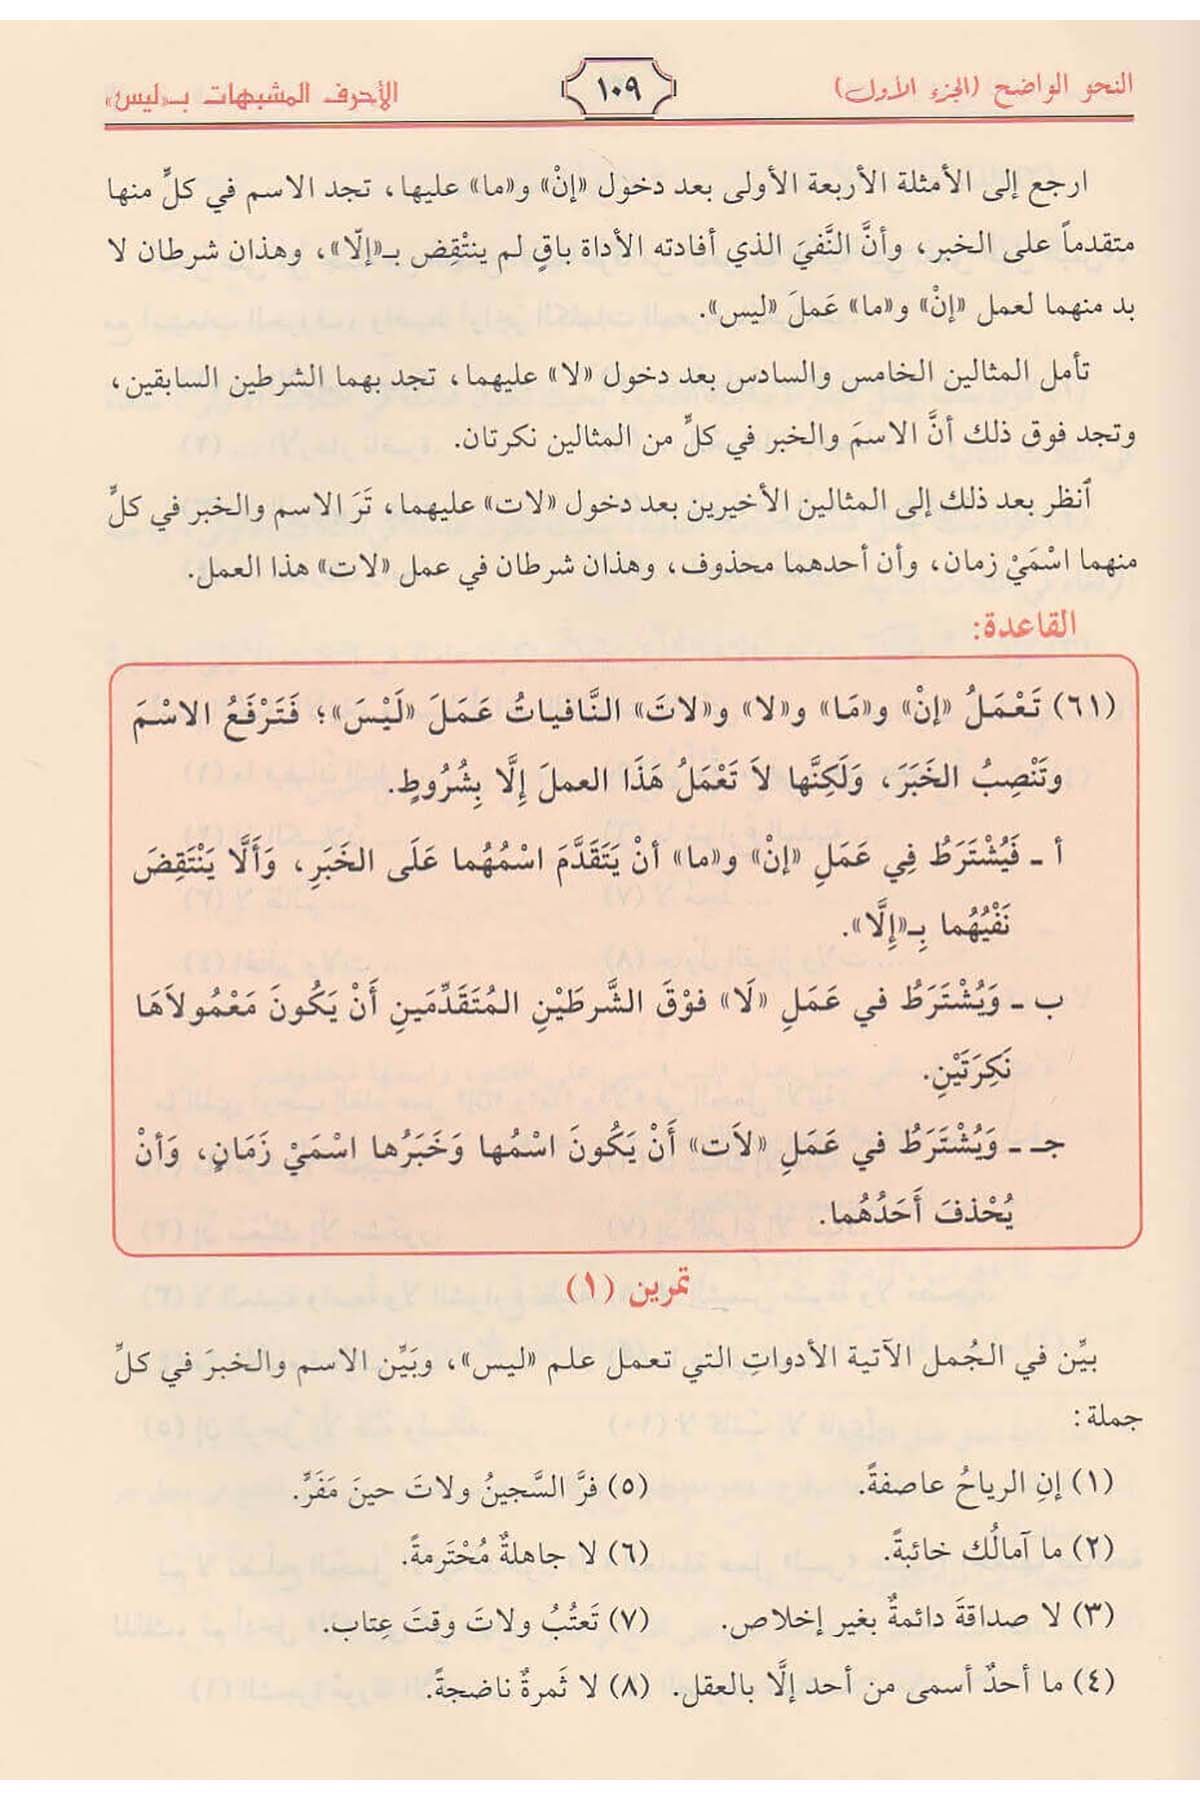 النحو الواضح (الجزء الأول)
١٠٩
الأحرف المشبهات بـ«ليس»
ارجع إلى الأمثلة الأربعة الأولى بعد دخول «إنْ» و«ما» عليها، تجد الاسم في كلٍّ منها
متقدماً على الخبر، وأنَّ النَّفيَ الذي أفادته الأداة باقٍ لم ينتْقِض بـ«إلّا»، وهذان شرطان لا
بد منهما لعمل «إنْ» و«ما» عَملَ «ليس».
تأمل المثالين الخامس والسادس بعد دخول «لا» عليهما، تجد بهما الشرطين السابقين،
وتجد فوق ذلك أنَّ الاسمَ والخبر في كلٍّ من المثالين نكرتان.
أنظر بعد ذلك إلى المثالين الأخيرين بعد دخول «لات» عليهما، تَرَ الاسم والخبر في كلٍّ
منهما اسْمَيْ زمان، وأن أحدهما محذوف، وهذان شرطان في عمل «لات» هذا العمل.
القاعدة:
(٦١) تَعْمَلُ «إنْ» و«مَا» و«لا» و«لاتَ» النَّافياتُ عَمَلَ «لَيْسَ»؛ فَتَرْفَعُ الاسْمَ
وتَنْصِبُ الخَبَرَ، وَلَكِنَّها لاَ تَعْمَلُ هَذَا العملَ إِلَّا بِشُرُوطٍ.
أ ـ فَيُشْتَرَطُ فِي عَمَلِ «إنْ» و«ما» أنْ يَتَقَدَّمَ اسْمُهُما عَلَى الخَبَرِ، وَأَلَّا يَنْتَقِضَ
نَفْيُهُما بِـ«إِلَّا».
ب ـ وَيُشْتَرَطُ في عَمَلِ «لَا» فوْقَ الشَّرطَيْنِ المُتَقَدِّمَينِ أَنْ يَكُونَ مَعْمُولاَهَا
نَكِرَتَيْنِ.
جـ ـ وَيُشْتَرَطُ في عَمَلِ «لاَت» أَنْ يَكُونَ اسْمُها وَخَبَرُها اسْمَيْ زَمَانٍ، وَأنْ
يُحْذفَ أَحَدُهُما.
تمرين (١)
بيِّن في الجُمل الآتية الأدواتِ التي تعمل علم «ليس»، وبَيِّن الاسم والخبرَ في كلِّ
جملة:
(١) إنِ الرياحُ عاصفةً.
(٢) ما آمالُك خائبةً.
(٣) لا صداقةَ دائمةٌ بغير إخلاص.
(٤) ما أحدٌ أسمى من أحد إلَّا بالعقل.
(٥) فرَّ السَّجينُ ولاتَ حينَ مَفَرٍّ.
(٦) لا جاهلةٌ مُحْتَرمةً.
(٧) تَعتُبُ ولاتَ وقتَ عِتاب.
(٨) لا ثَمرةٌ ناضجةً.